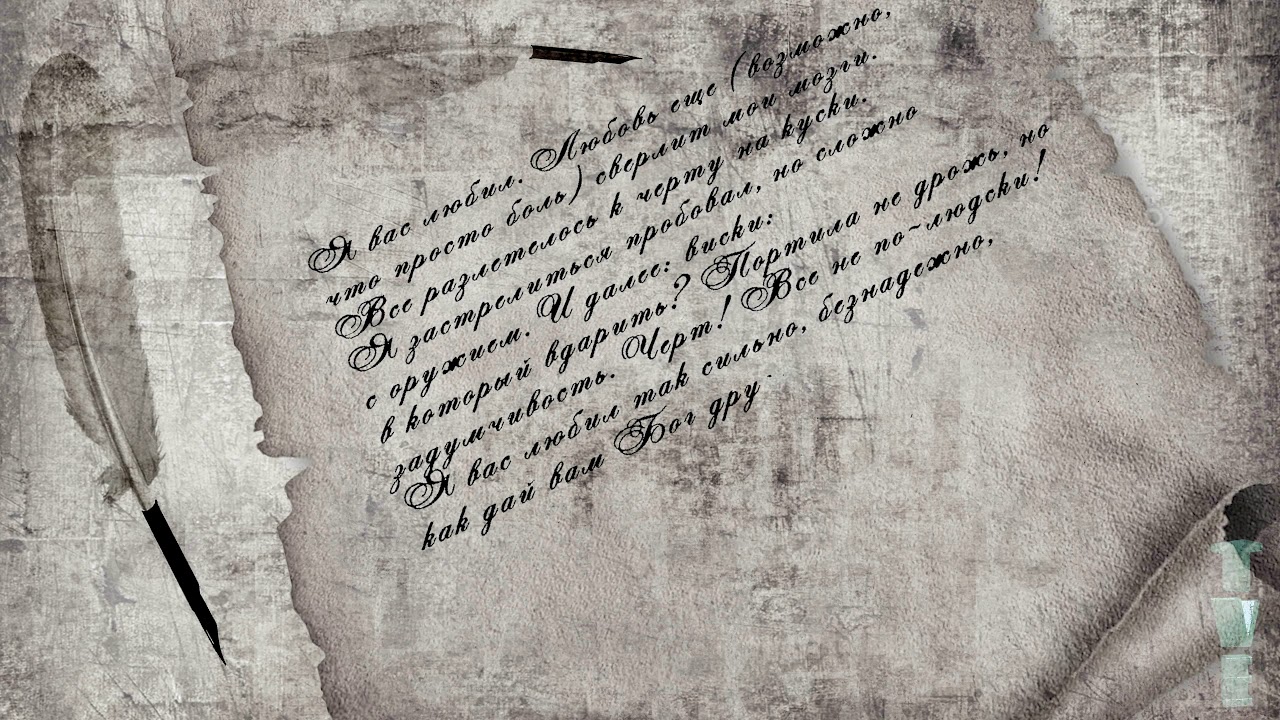 Я вас любил. Любовь еще (возможно,
что просто боль) сверлит мои мозги.
Все разлетелось к черту на куски.
Я застрелиться пробовал, но сложно
с оружием. И далее: виски:
в который вдарить? Портила не дрожь, но
задумчивость. Черт! Все не по~людски!
Я вас любил так сильно, безнадежно,
как дай вам Бог дру
TVE